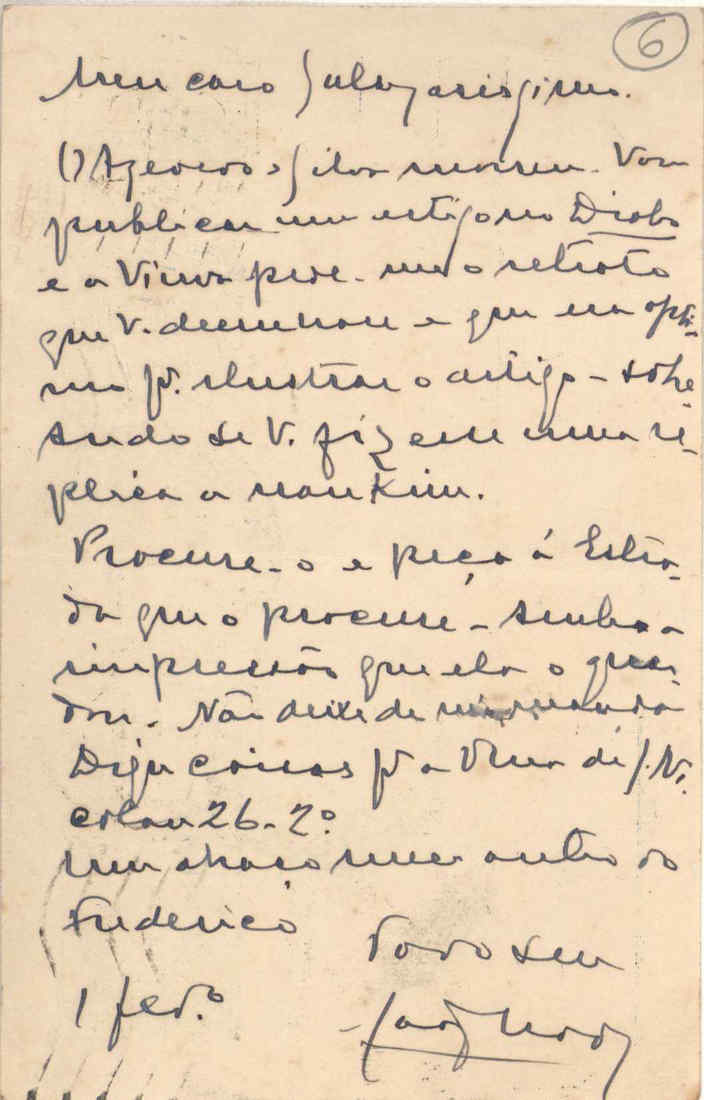 6
Meu caro Salazarissimo.
O Azevedo e Silva morreu. Vou
publicar um artigo no Diabo
e a Viuva pede-me o retrato
que V. desenhou e que era opti-
mo pª. ilustrar o artigo - sobre-
tudo se V. fizesse uma re-
plica a nankim.
Procure-o e peça á Estra-
da que o procure - tenho a
impressão que ela o guar-
dou. Não deixe de
Diga coisas pª a Rua de S. Ni-
colau 26-2º
Um abraço meu outro do
Frederico
Todo seu
1 fevº.